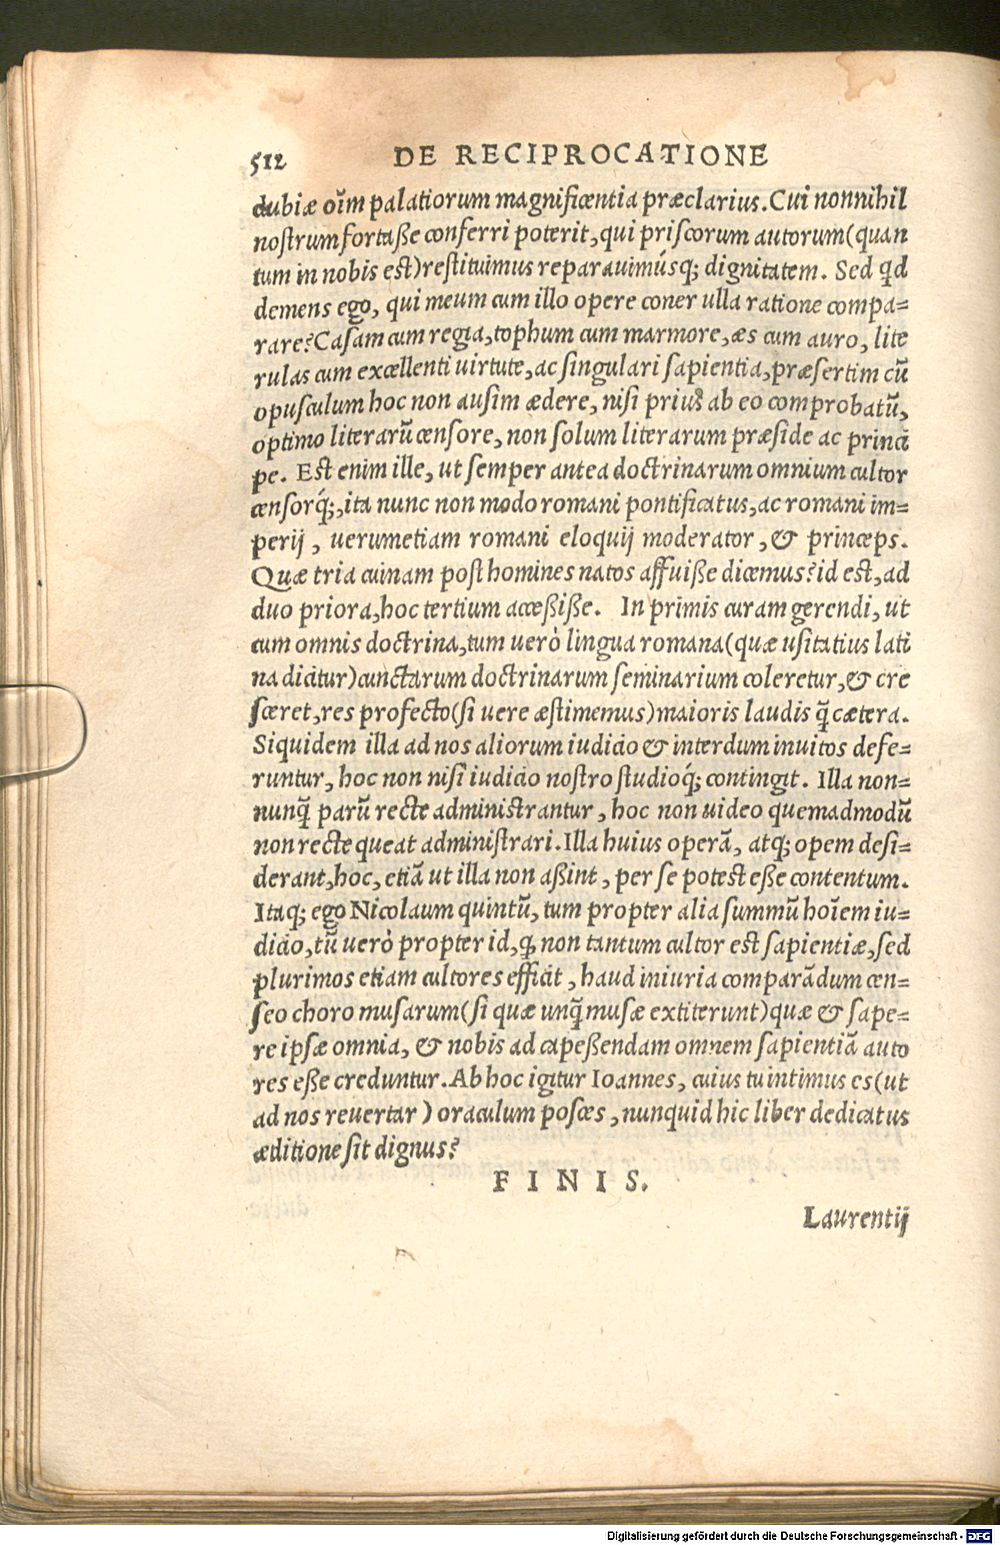 512 DE RECIPROCATIONE
dubiæ oĩm palatiorum magnificentia præclarius. Cui nonnihil
nostrum fortaße conferri poterit, qui priscorum autorum (quan
tum in nobis est) restituimus reparauimúsq; dignitatem. Sed qd
demens ego, qui meum cum illo opere coner ulla ratione compa-
rare? Casam cum regia, tophum cum marmore, æs cum auro, lite
rulas cum excellenti uirtute, ac singulari sapientia, præsertim cū
opusculum hoc non ausim ædere, nisi prius ab eo comprobatū,
optimo literarū censore, non solum literarum præside ac princi
pe. Est enim ille, ut semper antea doctrinarum omnium cultor
censorq́;, ita nunc non modo romani pontificatus, ac romani im-
perij, uerumetiam romani eloquij moderator, & princeps.
Quæ tria cuinam post homines natos affuiße dicemus? id est, ad
duo priora, hoc tertium acceßiße. In primis curam gerendi, ut
cum omnis doctrina, tum uerò lingua romana (quæ usitatius lati
na dicitur) cunctarum doctrinarum seminarium coleretur, & cre
sceret, res profecto (si uere æstimemus) maioris laudis q̃ cætera.
Siquidem illa ad nos aliorum iudicio & interdum inuitos defe-
runtur, hoc non nisi iudicio nostro studioq́; contingit. Illa non-
nunq̃ parū recte administrantur, hoc non uideo quemadmodū
non recte queat administrari. Illa huius operã, atq; opem desi-
derant, hoc, etiã ut illa non aßint, per se potest eße contentum.
Itaq; ego Nicolaum quintū, tum propter alia summū hoĩem iu-
dicio, tū uerò propter id, ꝙ non tantum cultor est sapientiæ, sed
plurimos etiam cultores efficit, haud iniuria comparãdum cen-
seo choro musarum (si quæ unq̃ musæ extiterunt) quæ & sape-
re ipsæ omnia, & nobis ad capeßendam omnem sapientiã auto
res eße creduntur. Ab hoc igitur Ioannes, cuius tu intimus es (ut
ad nos reuertar) oraculum posces, nunquid hic liber dedicatus
æditione sit dignus?
FINIS.
Laurentij
Digitalisierung gefördert durch die Deutsche Forschungsgemeinschaft - DFG